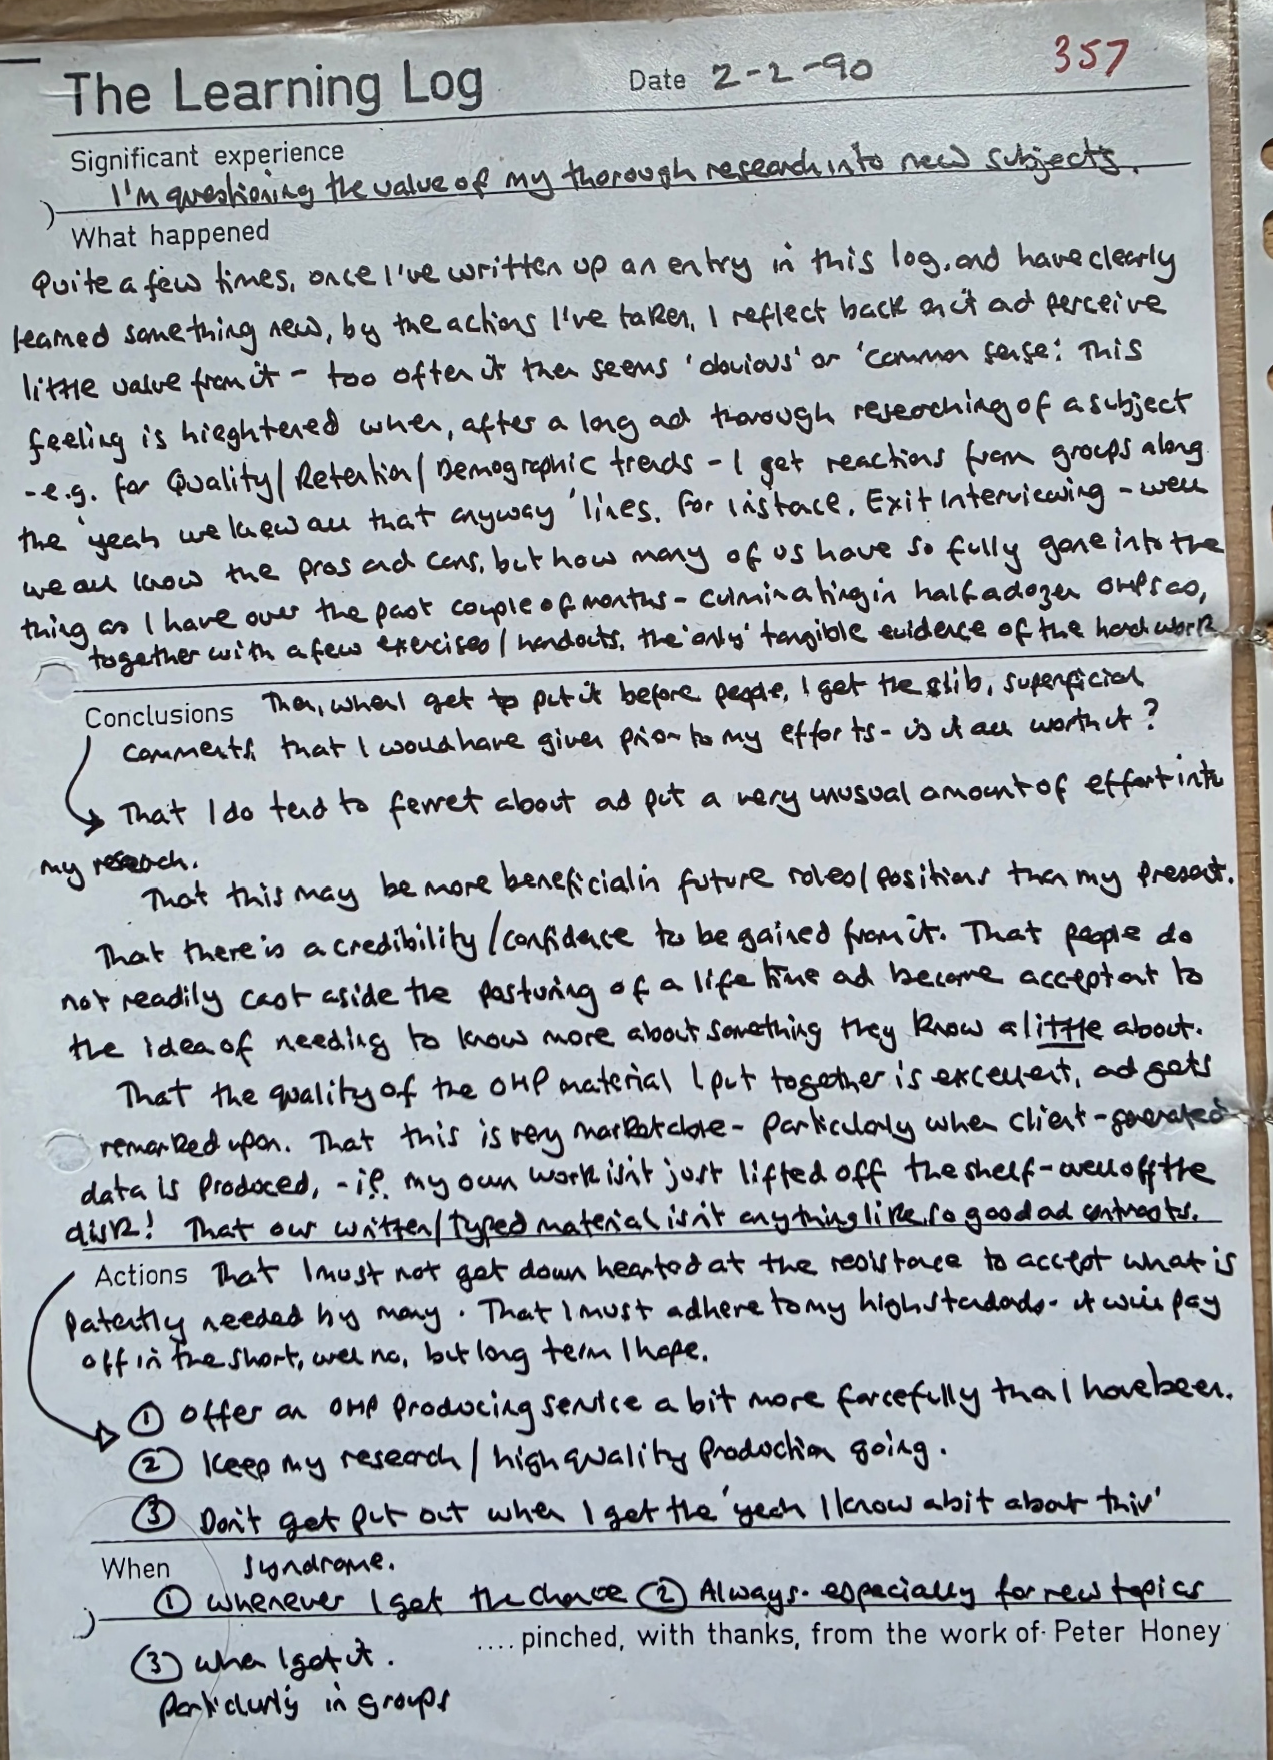 The Learning Log Date 2-2-90 357
Significant experience
I'm questioning the value of my thorough research into new subjects.
What happened
Quite a few times, once I've written up an entry in this log, and have clearly
learned something new, by the actions I've taken, I reflect back on it ad perceive
little value from it - too often it then seems 'obvious' or 'common sense'. This
feeling is hieghtened when, after a long ad thorough researching of a subject
- e.g. for Quality/Retention/Demographic trends - I get reactions from groups along
the 'yeah we knew all that anyway' lines. For instace, Exit Interviewing - well
we all know the pros and cons, but how many of us have so fully gone into the
thing as I have over the past couple of months - culminating in half a dozen OHPs
together with a few exercises/handouts, the 'only' tangible evidence of the hard work
Then, when I get to put it before people, I get the glib, superficial
Conclusions
comments that I would have given prior to my efforts - is it all worth it?
That I do tend to ferret about ad put a very unusual amount of effort into
my research.
That this may be more beneficial in future roles/positions than my present.
That there is a credibility/confidence to be gained from it. That people do
not readily cast aside the posturing of a life time ad become acceptant to
the idea of needing to know more about something they know a little about.
That the quality of the OHP material I put together is excellent, ad gets
remarked upon. That this is very marketable - particularly when client-generated
data is produced, - ie. my own work isn't just lifted off the shelf - well off the
disk! That our written/typed material isn't anything like so good ad contrasts.
Actions That I must not get down hearted at the resistance to accept what is
patently needed by many. That I must adhere to my high standards - it will pay
off in the short, well no, but long term I hope.
① Offer an OHP producing service a bit more forcefully than I have been.
② Keep my research/high quality production going.
③ Don't get put out when I get the 'yeah I know a bit about this'
When syndrome.
① whenever I get the chance ② Always - especially for new topics
.... pinched, with thanks, from the work of Peter Honey
③ when I get it.
particularly in groups